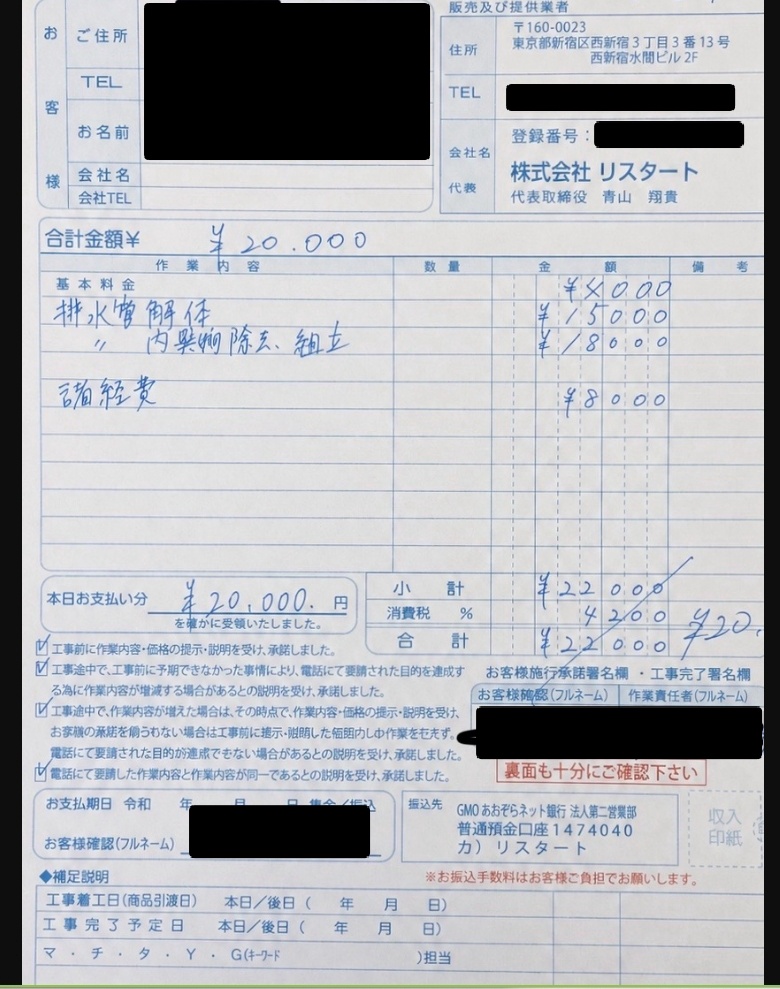 販売及び提供業者
お客様
ご住所
TEL
お名前
会社名
会社TEL
住所
〒160-0023
東京都新宿区西新宿3丁目3番13号
西新宿水間ビル 2F
TEL
登録番号：
会社名
代表
株式会社 リスタート
代表取締役 青山 翔貴
合計金額¥ ¥20.000
作業内容 数量 金額 備考
基本料金 ¥4000
排水管解体 ¥15000
〃 内異物除去、組立 ¥18000
諸経費 ¥8000
本日お支払い分 ¥20,000. 円
を確かに受領いたしました。
小計 ¥22000
消費税 % 4200
合計 ¥22000
¥20.
工事前に作業内容・価格の提示・説明を受け、承諾しました。
工事途中で、工事前に予期できなかった事情により、電話にて要請された目的を達成す
る為に作業内容が増減する場合があるとの説明を受け、承諾しました。
工事途中で、作業内容が増えた場合は、その時点で、作業内容・価格の提示・説明を受け、
電話にて要請された目的が達成できない場合があるとの説明を受け、承諾しました。
電話にて要請した作業内容と作業内容が同一であるとの説明を受け、承諾しました。
お客様施行承諾署名欄 ・工事完了署名欄
お客様確認(フルネーム) 作業責任者(フルネーム)
裏面も十分にご確認下さい
お支払期日 令和 年 月 日 集金/振込
お客様確認(フルネーム)
振込先
GMOあおぞらネット銀行 法人第二営業部
普通預金口座1474040
カ）リスタート
収入
印紙
◆補足説明
※お振込手数料はお客様ご負担でお願いします。
工事着工日(商品引渡日) 本日／後日( 年 月 日)
工事完了予定日 本日／後日( 年 月 日)
マ・チ・タ・Y・G(ｷｰﾜｰﾄﾞ )担当